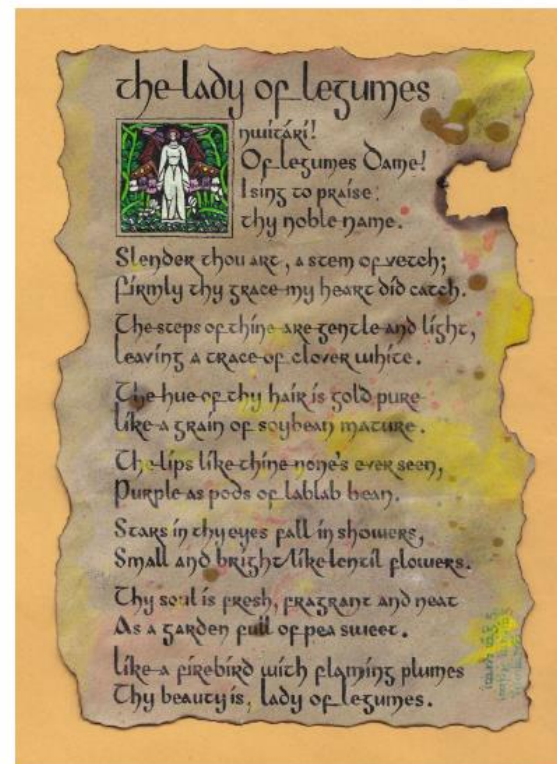 The lady of legumes
nwitári!
Of legumes Dame!
I sing to praise
thy noble name.
Slender thou art, a stem of vetch;
Firmly thy grace my heart did catch.
The steps of thine are gentle and light,
Leaving a trace of clover white.
The hue of thy hair is gold pure
Like a grain of soybean mature.
The lips like thine none's ever seen,
Purple as pods of lablab bean.
Stars in thy eyes fall in showers,
Small and bright like lentil flowers.
Thy soul is fresh, fragrant and neat
As a garden full of pea sweet.
Like a firebird with flaming plumes
Thy beauty is, lady of legumes.